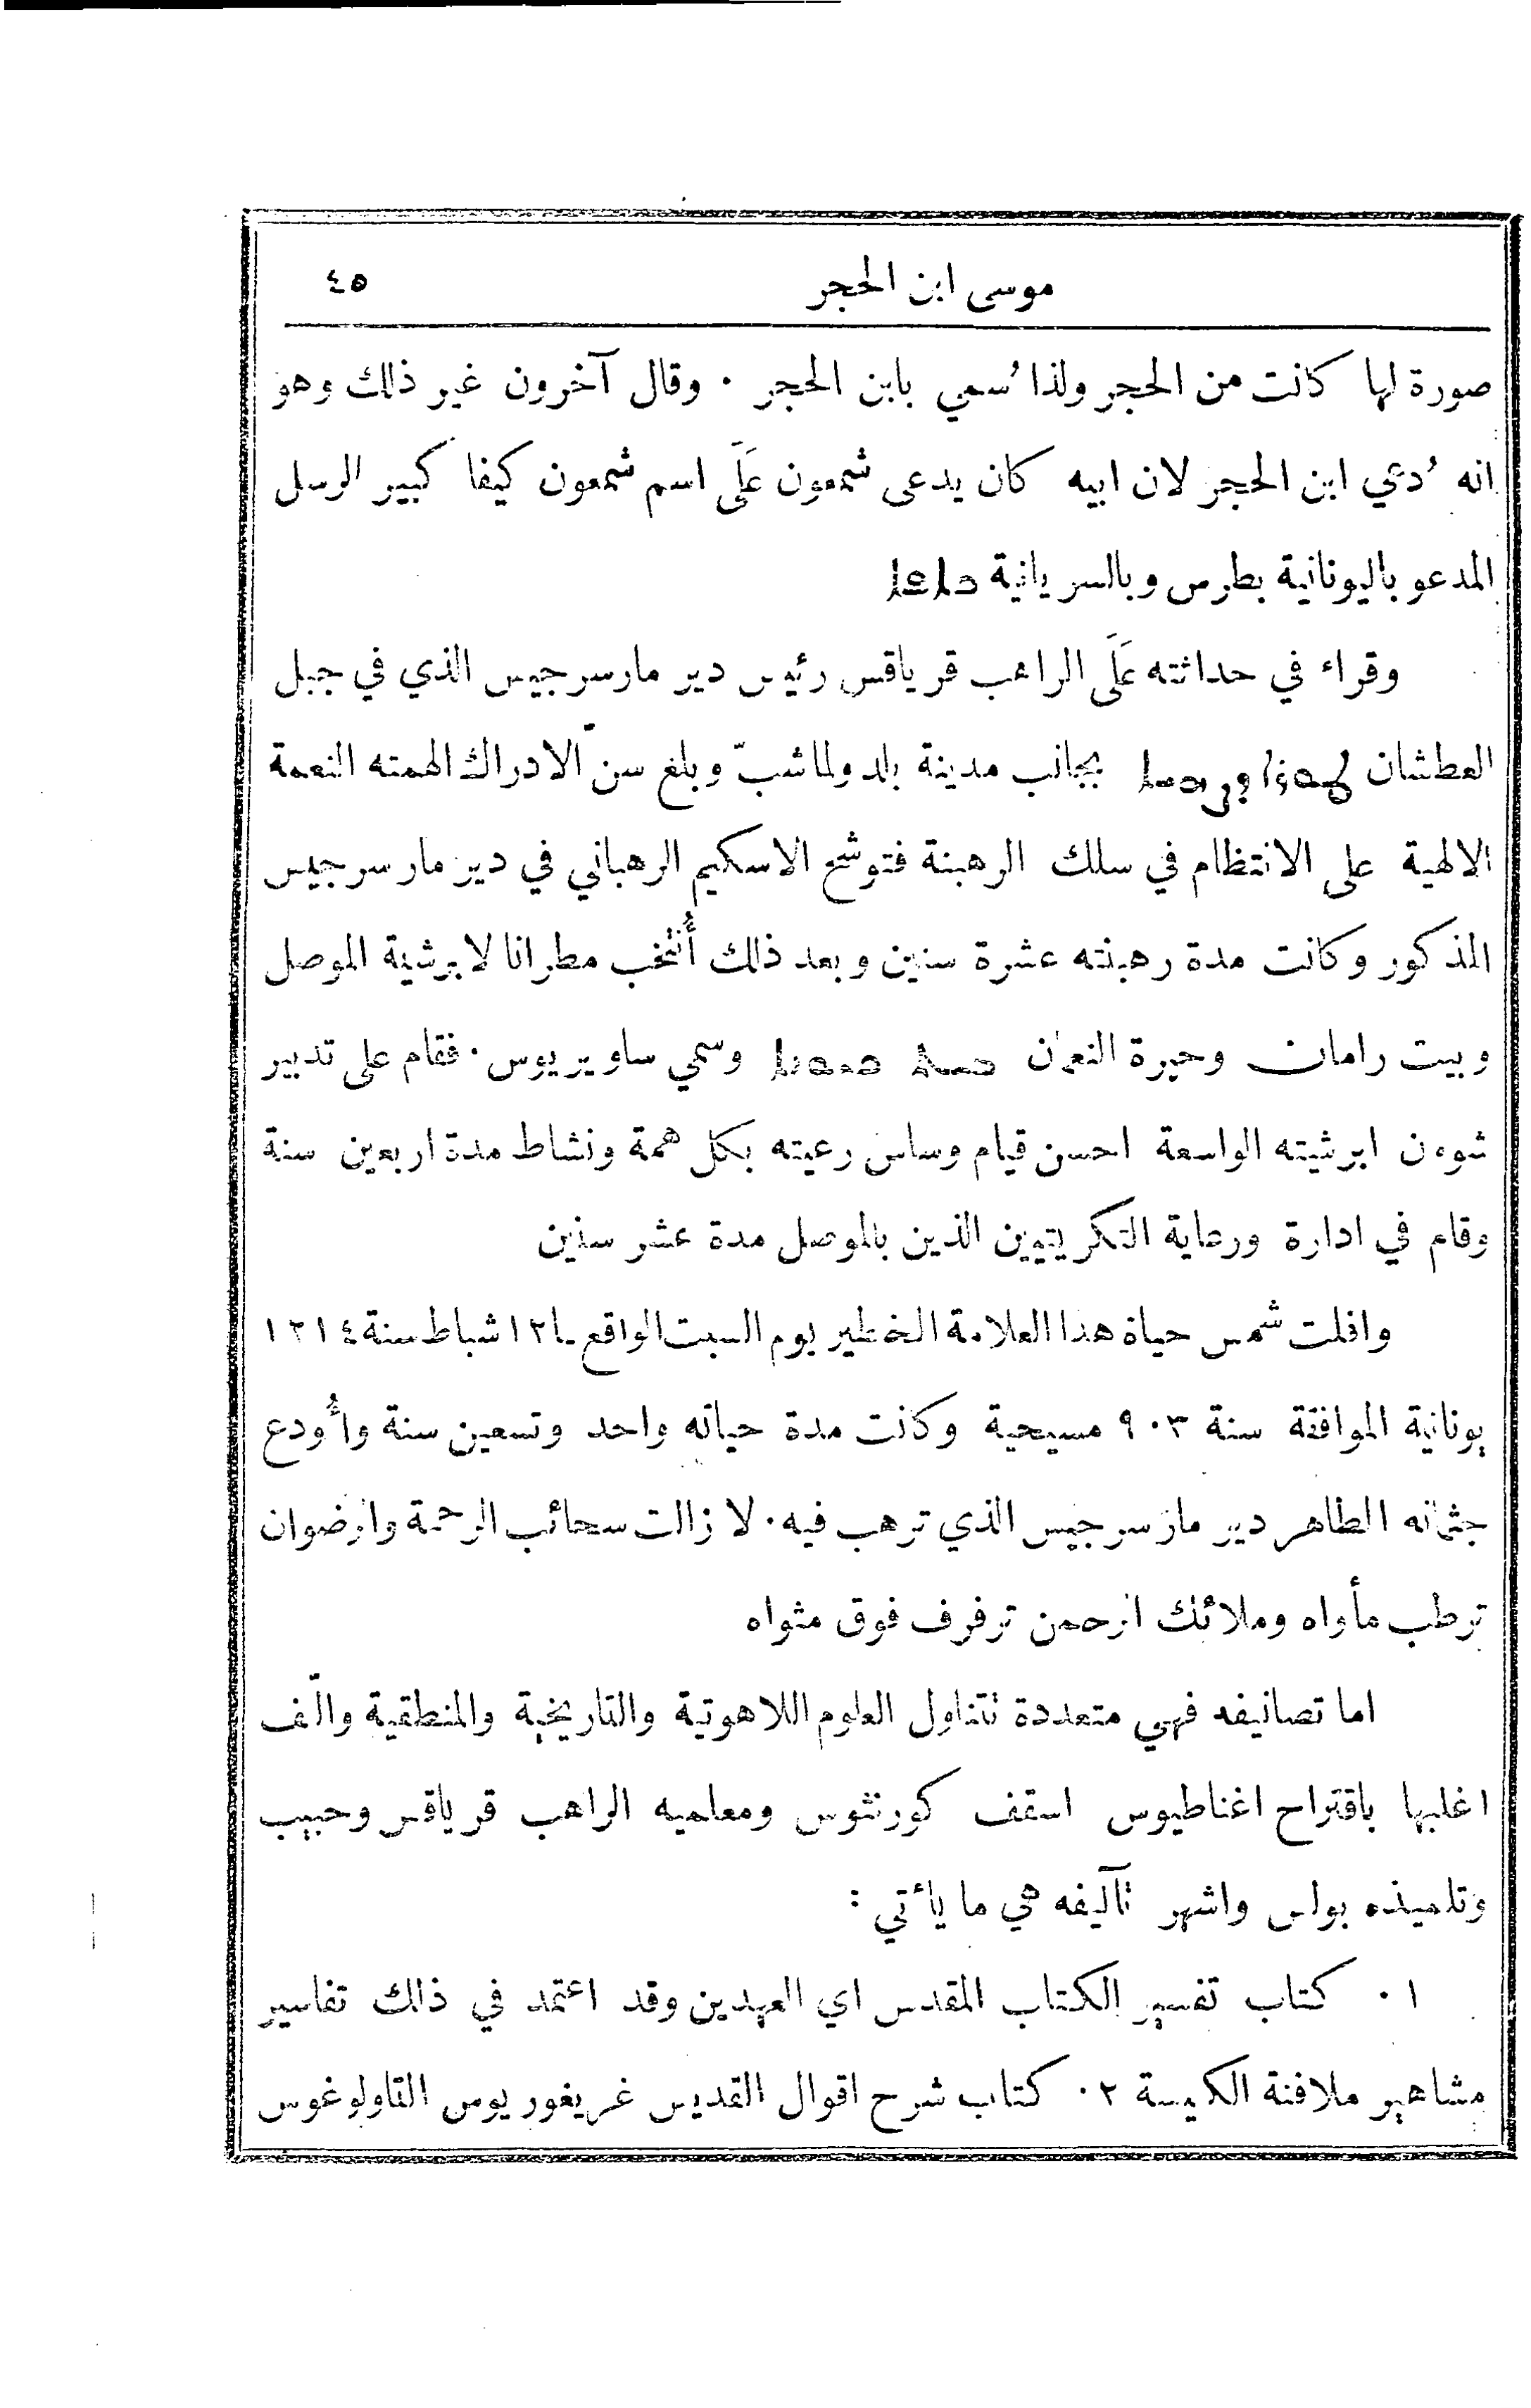 موسى ابن الحجر ٤٥
صورة لها كانت من الحجر ولذا سُمي بابن الحجر ٠ وقال آخرون غير ذلك وهو
انه دُعي ابن الحجر لان ابيه كان يدعى شمعون عَلَى اسم شمعون كيفا كبير الرسل
المدعو باليونانية بطرس وبالسريانية ܟܐܦܐ
وقراء في حداثته عَلَى الراهب قرياقس رئيس دير مارسرجيس الذي في جبل
العطشان ܛܘܪܐ ܨܗܝܐ بجانب مدينة بلد ولما شبّ وبلغ سنّ الادراك الهمته النعمة
الالهية على الانتظام في سلك الرهبنة فتوشح الاسكيم الرهباني في دير مار سرجيس
المذكور وكانت مدة رهبنته عشرة سنين وبعد ذلك أُنتُخب مطرانا لابرشية الموصل
وبيت رامان وحيرة النعمان وسمي ساويريوس ٠ فقام على تدبير
شوءن ابرشيته الواسعة احسن قيام وساس رعيته بكل همة ونشاط مدة اربعين سنة
وقام في ادارة ورعاية التكريتيين الذين بالموصل مدة عشر سنين
وافلت شمس حياة هذا العلامة الخطير يوم السبت الواقع ١٢ شباط سنة ١٢١٤
يونانية الموافقة سنة ٩٠٣ مسيحية وكانت مدة حياته واحد وتسعين سنة وأُودع
جثمانه الطاهر دير مار سرجيس الذي ترهب فيه ٠ لا زالت سحائب الرحمة والرضوان
ترطب مأواه وملائك الرحمن ترفرف فوق مثواه
اما تصانيفه فهي متعددة تتناول العلوم اللاهوتية والتاريخية والمنطقية والّف
اغلبها باقتراح اغناطيوس اسقف كورنثوس ومعلميه الراهب قرياقس وحبيب
وتلميذه بولس واشهر تآليفه هي ما يأتي :
١ ٠ كتاب تفسير الكتاب المقدس اي العهدين وقد اعتمد في ذلك تفاسير
مشاهير ملافنة الكنيسة ٢ ٠ كتاب شرح اقوال القديس غريغوريوس الثاولوغوس